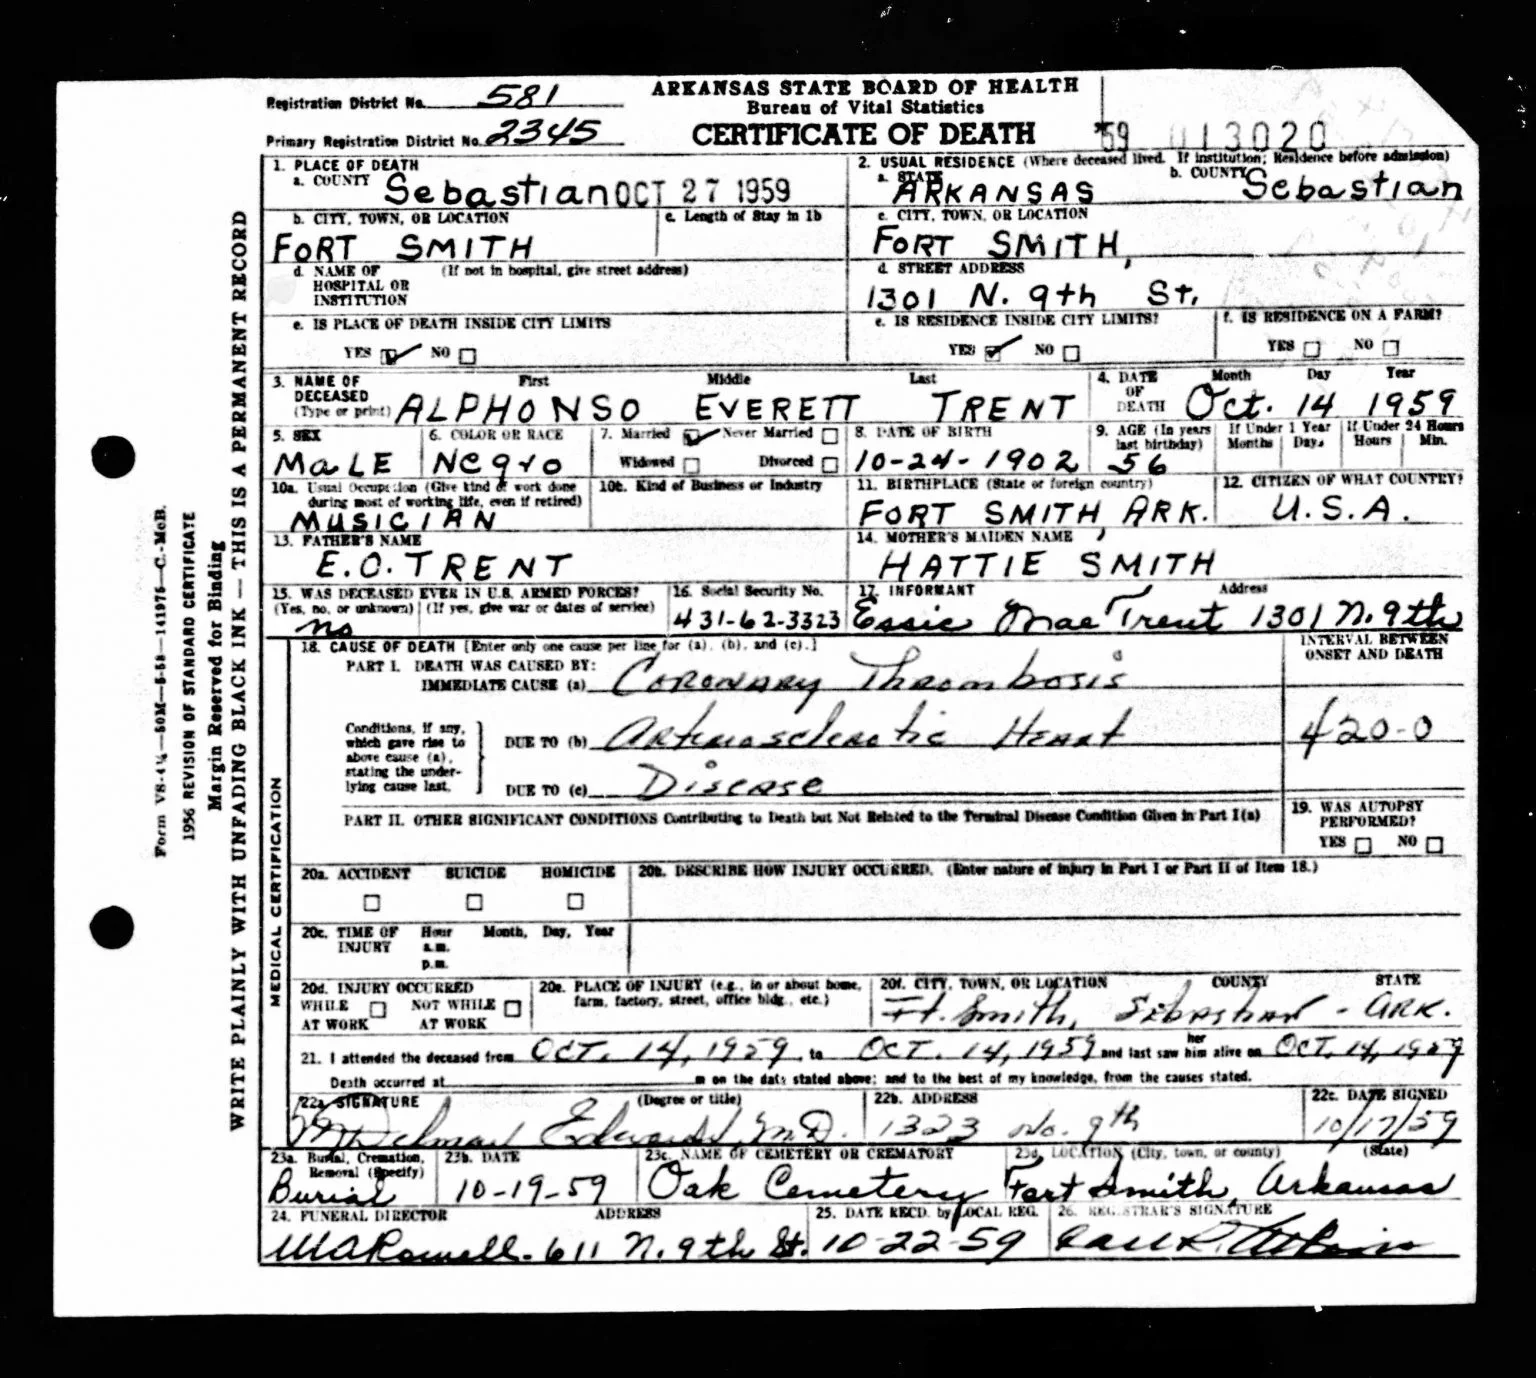 Registration District No. 581
ARKANSAS STATE BOARD OF HEALTH
Bureau of Vital Statistics
Primary Registration District No. 2345
CERTIFICATE OF DEATH
'59 013020
1. PLACE OF DEATH
a. COUNTY Sebastian OCT 27 1959
2. USUAL RESIDENCE (Where deceased lived. If institution; Residence before admission)
a. STATE ARKANSAS b. COUNTY Sebastian
b. CITY, TOWN, OR LOCATION FORT SMITH
c. Length of Stay in 1b
c. CITY, TOWN, OR LOCATION
FORT SMITH,
d. NAME OF HOSPITAL OR INSTITUTION (If not in hospital, give street address)
d. STREET ADDRESS
1301 N. 9th St.
e. IS PLACE OF DEATH INSIDE CITY LIMITS
YES ✓ NO
e. IS RESIDENCE INSIDE CITY LIMITS?
YES ✓ NO
f. IS RESIDENCE ON A FARM?
YES NO
3. NAME OF DECEASED (Type or print)
First Middle Last
ALPHONSO EVERETT TRENT
4. DATE OF DEATH Month Day Year
Oct. 14 1959
5. SEX
MALE
6. COLOR OR RACE
Negro
7. Married ✓ Never Married
Widowed Divorced
8. DATE OF BIRTH
10-24-1902
9. AGE (In years last birthday)
56
If Under 1 Year
Months Days
If Under 24 Hours
Hours Min.
10a. Usual Occupation (Give kind of work done during most of working life, even if retired)
MUSICIAN
10b. Kind of Business or Industry
11. BIRTHPLACE (State or foreign country)
FORT SMITH, ARK.
12. CITIZEN OF WHAT COUNTRY?
U.S.A.
13. FATHER'S NAME
E.O. TRENT
14. MOTHER'S MAIDEN NAME
HATTIE SMITH
15. WAS DECEASED EVER IN U.S. ARMED FORCES?
(Yes, no, or unknown) (If yes, give war or dates of service)
no
16. Social Security No.
431-62-3323
17. INFORMANT Address
Essie Mae Trent 1301 N. 9th
18. CAUSE OF DEATH [Enter only one cause per line for (a), (b), and (c).]
INTERVAL BETWEEN ONSET AND DEATH
PART I. DEATH WAS CAUSED BY:
IMMEDIATE CAUSE (a) Coronary Thrombosis
Conditions, if any, which gave rise to above cause (a), stating the underlying cause last.
DUE TO (b) Arteriosclerotic Heart
420-0
DUE TO (c) Disease
PART II. OTHER SIGNIFICANT CONDITIONS Contributing to Death but Not Related to the Terminal Disease Condition Given in Part I(a)
19. WAS AUTOPSY PERFORMED?
YES NO
20a. ACCIDENT SUICIDE HOMICIDE
20b. DESCRIBE HOW INJURY OCCURRED. (Enter nature of injury in Part I or Part II of Item 18.)
20c. TIME OF INJURY Hour Month, Day, Year
a.m.
p.m.
20d. INJURY OCCURRED
WHILE AT WORK NOT WHILE AT WORK
20e. PLACE OF INJURY (e.g., in or about home, farm, factory, street, office bldg., etc.)
20f. CITY, TOWN, OR LOCATION COUNTY STATE
Ft. Smith, Sebastian - ARK.
21. I attended the deceased from OCT. 14, 1959, to OCT. 14, 1959 and last saw her him alive on OCT. 14, 1959
Death occurred at m on the date stated above; and to the best of my knowledge, from the causes stated.
22a. SIGNATURE (Degree or title)
Edwards, M.D.
22b. ADDRESS
1323 No. 9th
22c. DATE SIGNED
10/17/59
23a. Burial, Cremation, Removal (Specify)
Burial
23b. DATE
10-19-59
23c. NAME OF CEMETERY OR CREMATORY
Oak Cemetery
23d. LOCATION (City, town, or county) (State)
Fort Smith, Arkansas
24. FUNERAL DIRECTOR ADDRESS
Rowell. 611 N. 9th St.
25. DATE RECD. by LOCAL REG.
10-22-59
26. REGISTRAR'S SIGNATURE
MEDICAL CERTIFICATION
WRITE PLAINLY WITH UNFADING BLACK INK — THIS IS A PERMANENT RECORD
Margin Reserved for Binding
1956 REVISION OF STANDARD CERTIFICATE